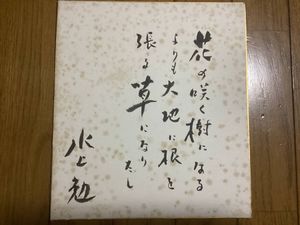 花の咲く樹になる
よりも大地に根を
張る草になりたし
水上勉